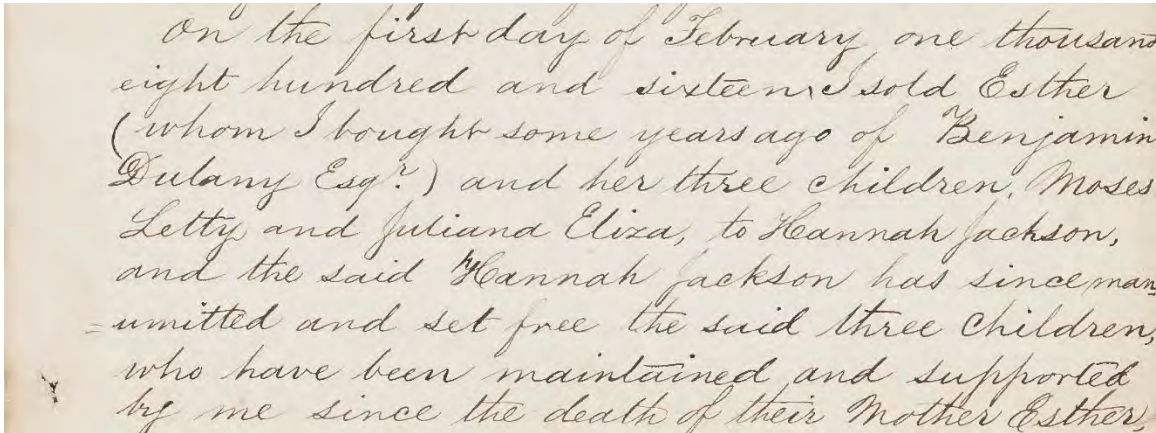 On the first day of February one thousand
eight hundred and sixteen, I sold Esther
(whom I bought some years ago of Benjamin
Dulany Esqr.) and her three children, Moses
Letty and Juliana Eliza, to Hannah Jackson,
and the said Hannah Jackson has since man=
=umitted and set free the said three children,
who have been maintained and supported
by me since the death of their Mother Esther,